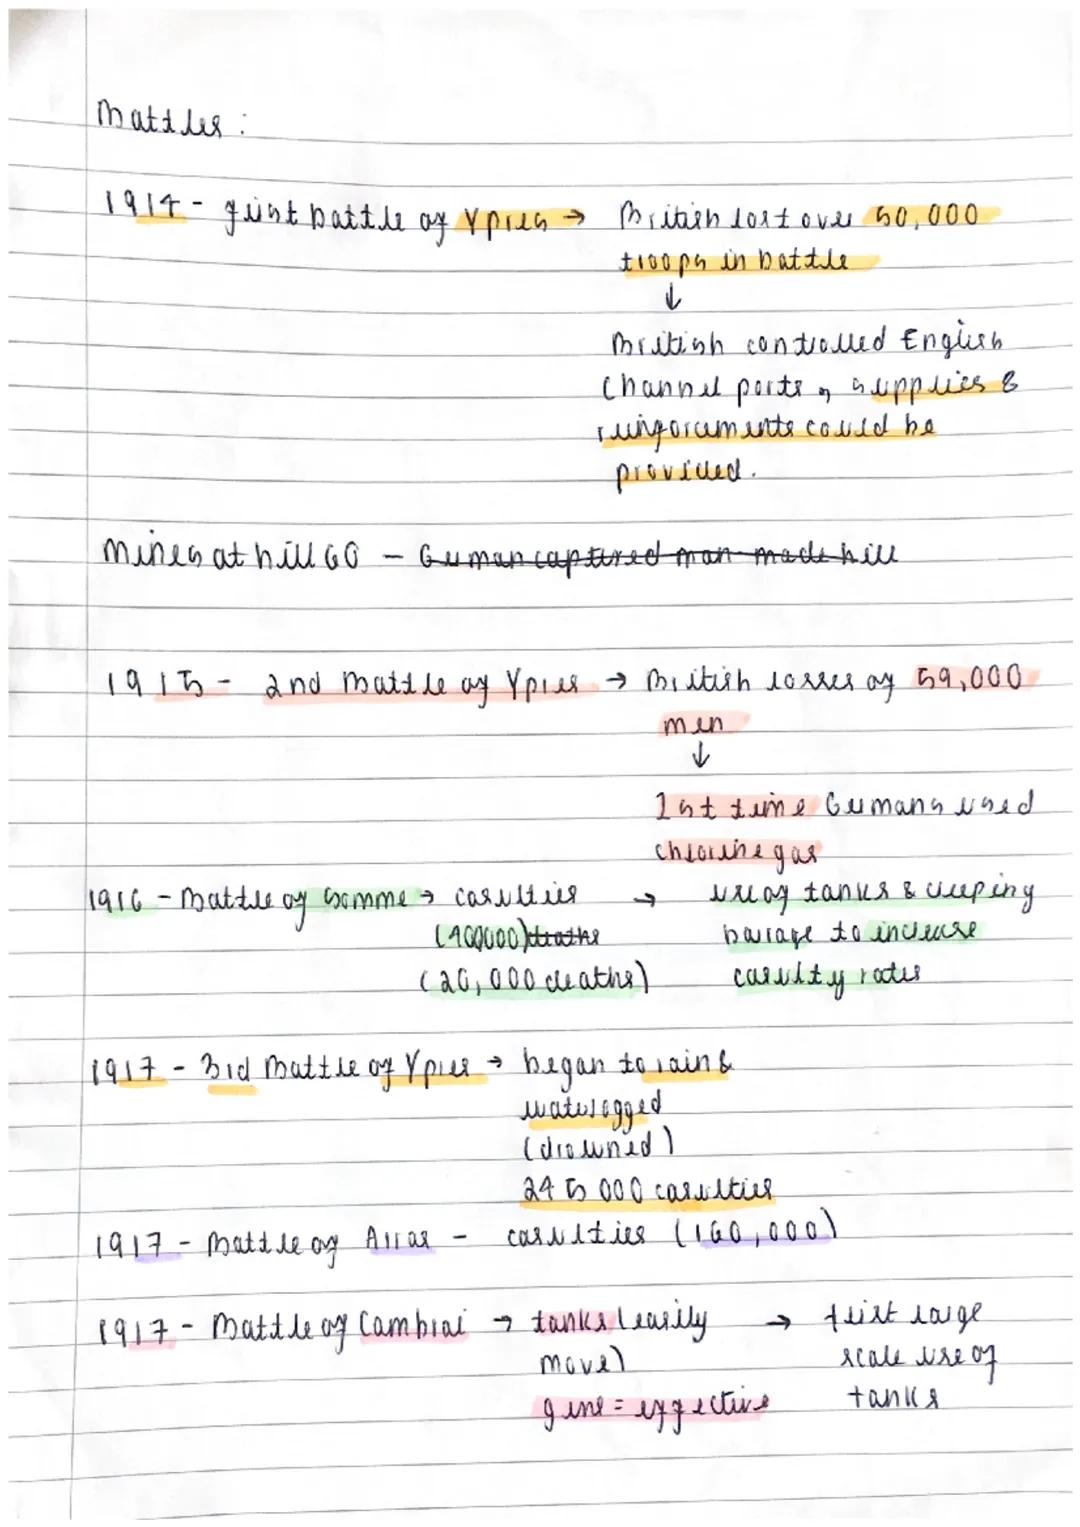 Battles :
1914 - first battle of Ypres → British lost over 50,000
troops in battle
↓
British controlled English
Channel ports, supplies &
reinforcements could be
provided.
Mines at hill 60 - German captured man-made hill
1915 - 2nd Battle of Ypres → British losses of 59,000
men
↓
1st time Germans used
chlorine gas
1916 - Battle of Somme → casulties → use of tanks & creeping
(400000) deaths barage to increase
(20,000 deaths) casulty rates
1917 - 3rd Battle of Ypres → began to rain &
waterlogged
(drowned)
245000 casulties
1917 - Battle of Arras - casulties (160,000)
1917 - Battle of Cambrai → tanks (easily → first large
move) scale use of
tanks